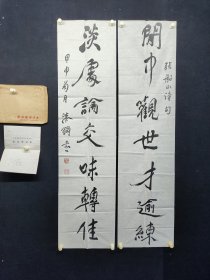 張船山詩句
閒中觀世才逾練
淡處論交味轉佳
甲申菊月